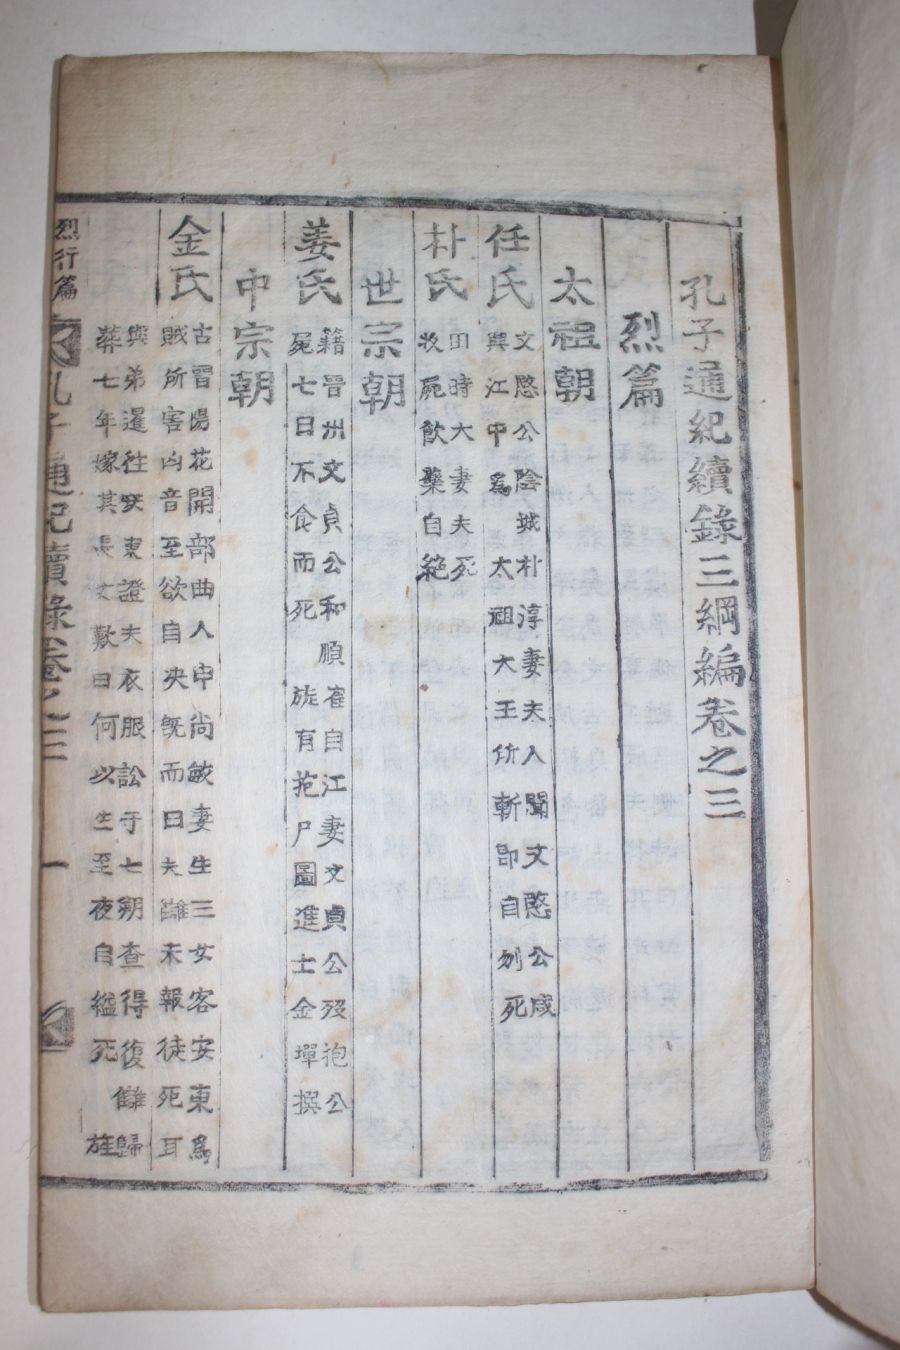 孔子通紀續錄三綱編卷之三
烈篇
太祖朝
任氏
文愍公陰城朴淳妻夫人聞文愍公咸
興江中爲太祖大王所斬卽自刎死
朴氏
田時大妻夫死
收屍飮藥自絶
世宗朝
姜氏
籍晋州文貞公和順崔自江妻文貞公歿抱公
屍七日不食而死旌有抱尸圖進士金墠撰
中宗朝
金氏
古晋陽花開部曲人申尚敏妻生三女客安東爲
賊所害凶音至欲自决旣而曰夫讎未報徒死耳
與弟暹徃安東證夫衣服訟于七朔查得復讎歸
葬七年嫁其長女歎曰何以生至夜自縊死旌
烈行篇
孔子通紀續錄卷之三
一